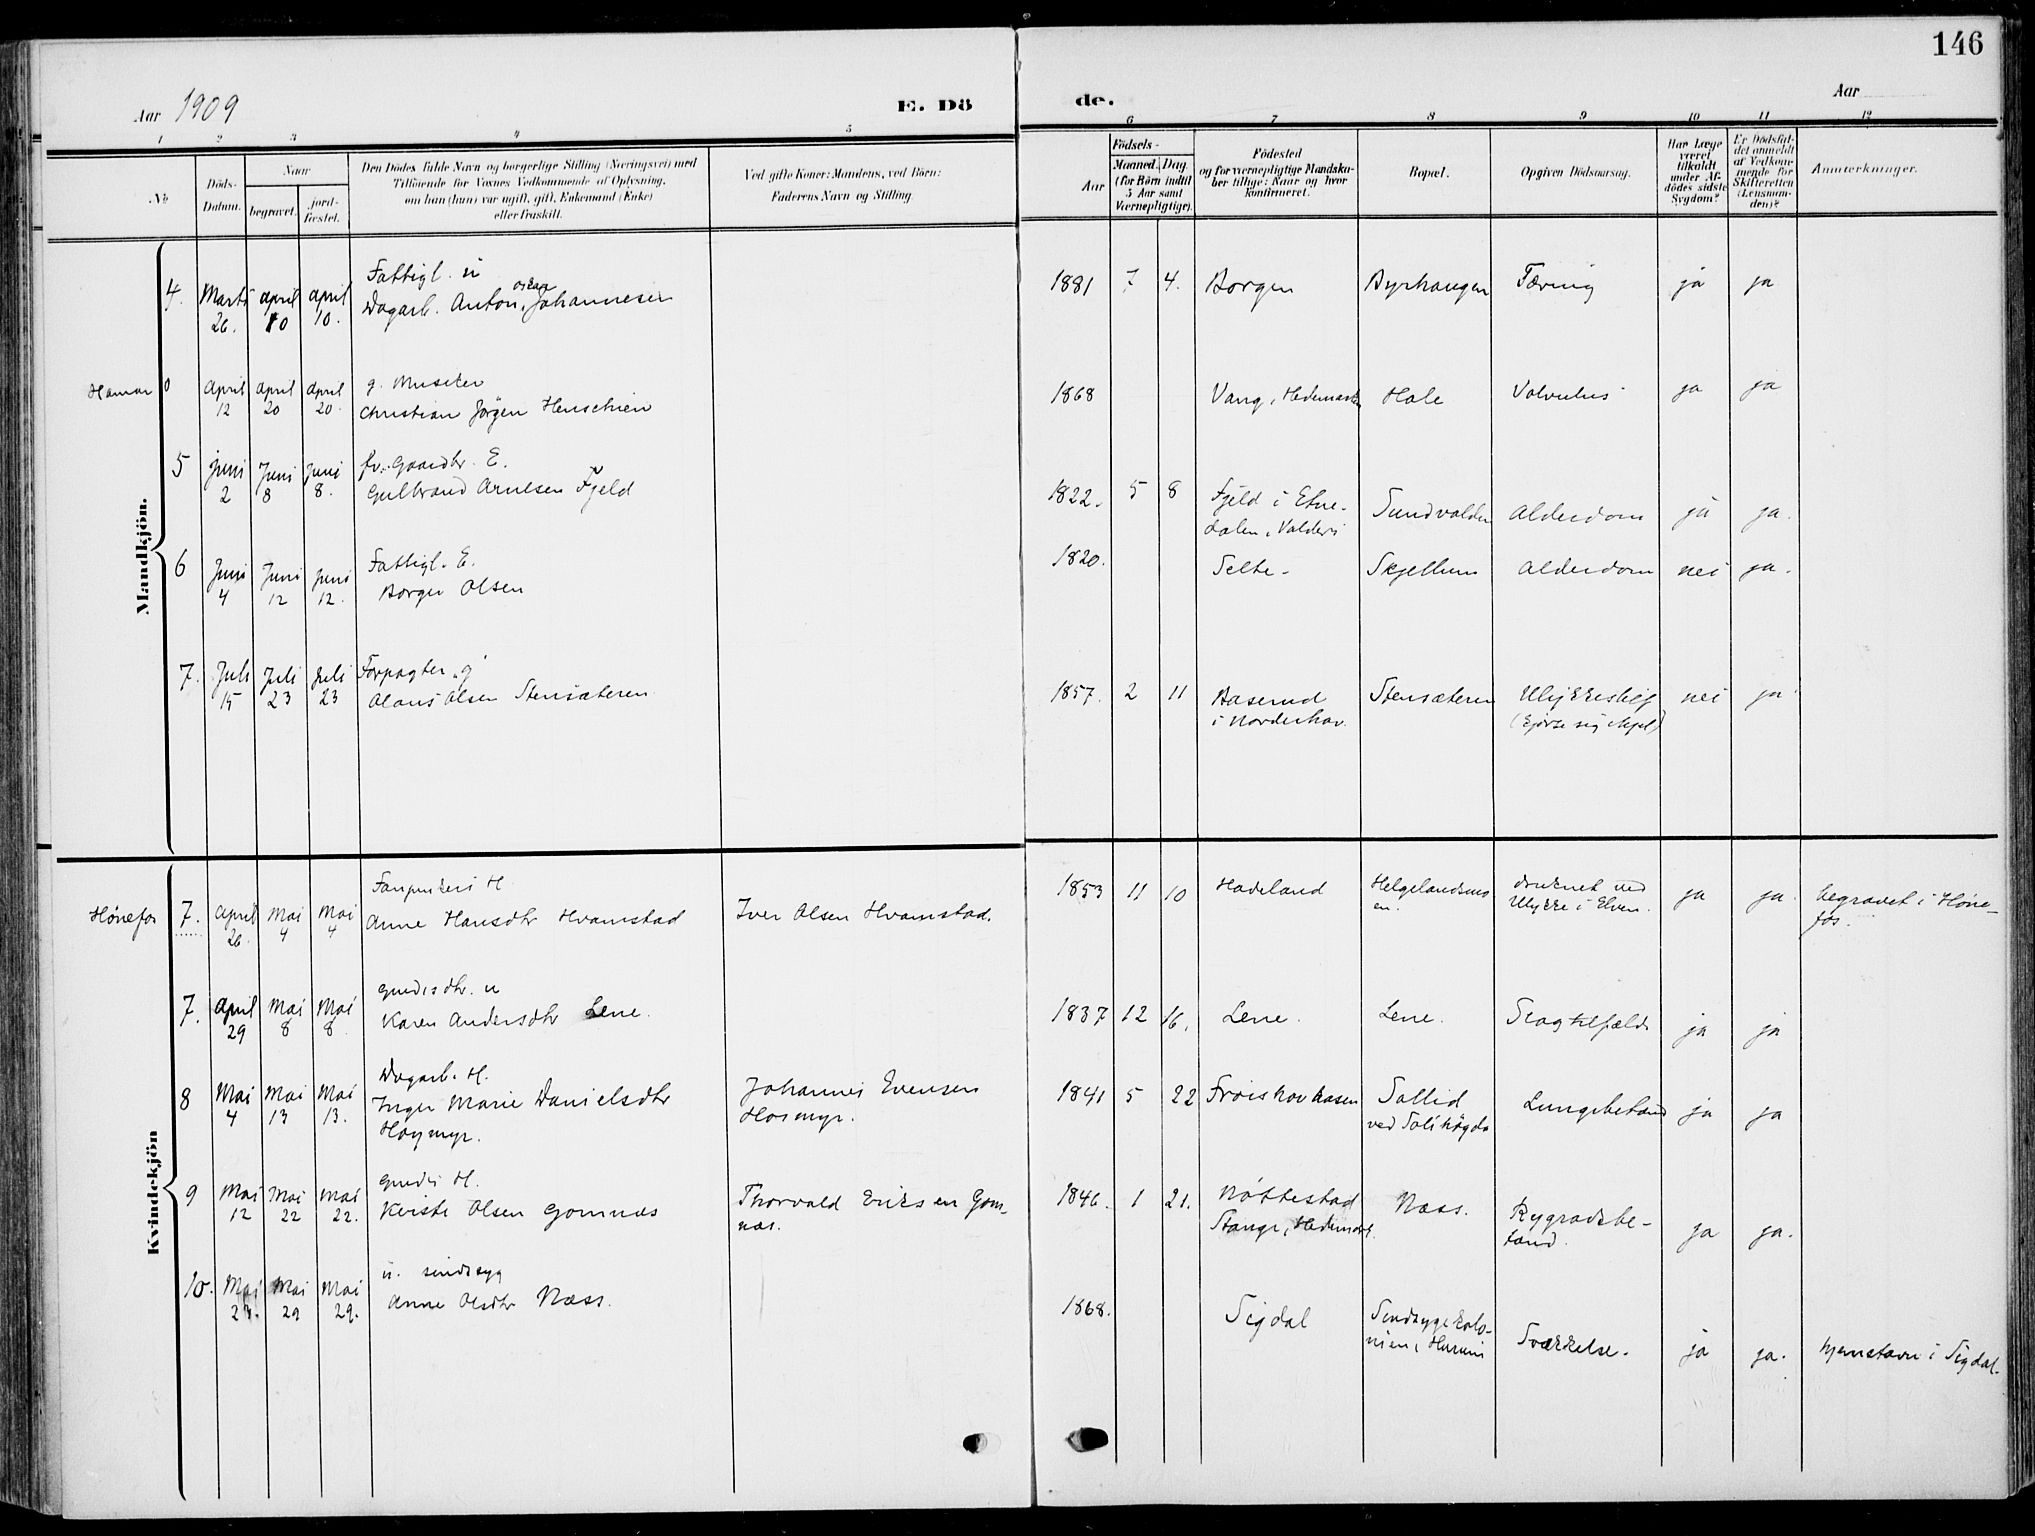 146
Aar 1909
E. Dö
de.
Aar
1 2 3 4 5 6 7 8 9 10 11 12
No
Döds-
Datum.
Naar
begravet.
jord-
fæstet.
Den Dödes fulde Navn og borgerlige Stilling (Næringsvei) med
Tilföiende for Voxnes Vedkommende af Oplysning,
om han (hun) var ugift, gift, Enkemand (Enke)
eller fraskilt.
Ved gifte Koner: Mandens, ved Börn:
Faderens Navn og Stilling.
Födsels-
Aar
Maaned. Dag.
(for Börn indtil
5 Aar samt
Værnepligtige).
Födested
og for værnepligtige Mandska-
ber tillige: Naar og hvor
konfirmeret.
Bopæl.
Opgiven Dödsaarsag.
Har Læge
været
tilkaldt
under Af-
dödes sidste
Sygdom?
Er Dödsfal-
det anmeldt
af Vedkom-
mende for
Skifteretten
(Lensman-
den)?
Anmerkninger.
Mandkjön.
4. Marts 26. april 10 april 10.
Fattigl. u
Dagarb. Anton Oskar Johannesen
1881 7 4. Borgen Byrhaugen Tæring ja ja
Hamar 0 april 12 april 20 april 20.
g. Musiker
Christian Jörgen Henschien
1868 Vang, Hedemarken Hole Volvulus ja ja
5 juni 2 Juni 8 juni 8.
fv. Gaardbr. E.
Gulbrand Arnesen Fjeld
1822. 5 8 Fjeld i Etne-
dalen, Valders Sundvolden Alderdom ja ja.
6 Juni 4 Juni 12 juni 12.
Fattigl. E.
Borger Olsen
1820. Selte. Skjellum Alderdom nei ja.
7. Juli 15 Juli 23 Juli 23
Forpagter. g
Olaus Olsen Stensæteren
1857. 2 11 Haserud
i Norderhov. Stensæteren Ulykkestilf nei ja
Kvindekjön
Hönefos 7. april 26. Mai 4 Mai 4
H
Anne Hansdtr Hvamstad
Iver Olsen Hvamstad.
1853 11 10 Hadeland druknet ved
Ulykke i Elven. ja ja. begravet i Höne-
fos.
7. april 29 Mai 8 Mai 8
Karen Andersdtr Lene.
1837 12 16. Lene. Lene. Slagtilfælde ja ja
8 Mai 4 Mai 13 Mai 13.
Dagarb. H.
Inger Marie Danielsdtr
Johannes Evensen
1841 5 22 Sollid
ved Solihögda Lungebetænd ja ja
9 Mai 12 Mai 22 Mai 22.
H.
Olsen Gomnæs
Thorvald Eriksen Gom-
næs.
1846. 1 21. Nöttestad
Stange, Hedemark. Næss. Rygradsbe-
tænd. ja ja.
10. Mai Mai 29 Mai 29.
u. sindssyg
Anne Olsdtr Næss.
1868. Sigdal Sindsygekolo-
nien, Hurum Svækkelse. ja ja. hjemstavn i Sigdal.